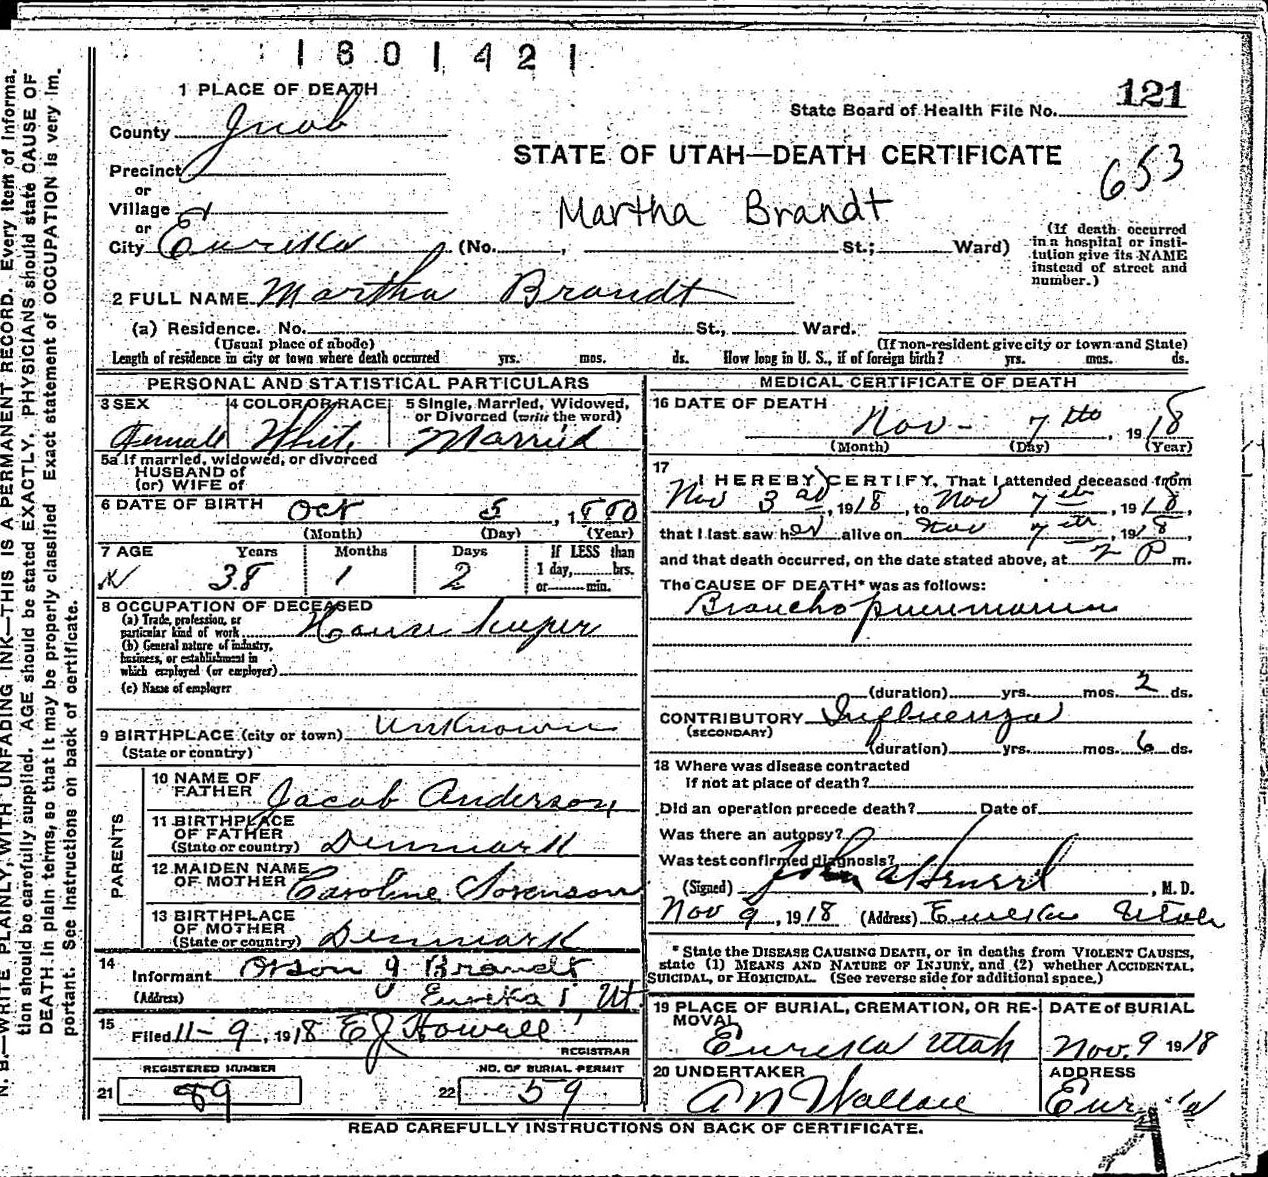 1801421
1 PLACE OF DEATH
121
State Board of Health File No.
County Juab
STATE OF UTAH—DEATH CERTIFICATE
653
Precinct
or
Village
Martha Brandt
or
City Eureka (No. , St.; Ward)
(If death occurred in a hospital or institution give its NAME instead of street and number.)
2 FULL NAME Martha Brandt
(a) Residence. No. St., Ward.
(Usual place of abode) (If non-resident give city or town and State)
Length of residence in city or town where death occurred yrs. mos. ds. How long in U. S., if of foreign birth? yrs. mos. ds.
PERSONAL AND STATISTICAL PARTICULARS
3 SEX 4 COLOR OR RACE 5 Single, Married, Widowed,
or Divorced (write the word)
Female White Married
5a If married, widowed, or divorced
HUSBAND of
(or) WIFE of
6 DATE OF BIRTH Oct 5, 1880
(Month) (Day) (Year)
7 AGE Years Months Days If LESS than
1 day, hrs.
or min.
38 1 2
8 OCCUPATION OF DECEASED
(a) Trade, profession, or
particular kind of work House keeper
(b) General nature of industry,
business, or establishment in
which employed (or employer)
(c) Name of employer
9 BIRTHPLACE (city or town) unknown
(State or country)
PARENTS
10 NAME OF
FATHER Jacob Anderson
11 BIRTHPLACE
OF FATHER
(State or country) Denmark
12 MAIDEN NAME
OF MOTHER Caroline Sorenson
13 BIRTHPLACE
OF MOTHER
(State or country) Denmark
14
Informant Orson J Brandt
(Address) Eureka, Ut
15
Filed 11-9, 1918 EJ Howell
REGISTRAR
REGISTERED NUMBER NO. OF BURIAL PERMIT
21 89 22 59
MEDICAL CERTIFICATE OF DEATH
16 DATE OF DEATH
Nov - 7th, 1918
(Month) (Day) (Year)
17
I HEREBY CERTIFY, That I attended deceased from
Nov 3rd, 1918, to Nov 7th, 1918,
that I last saw her alive on Nov 7th, 1918,
and that death occurred, on the date stated above, at 2 P m.
The CAUSE OF DEATH* was as follows:
Broncho pneumonia
(duration) yrs. mos. 2 ds.
CONTRIBUTORY Influenza
(SECONDARY)
(duration) yrs. mos. 6 ds.
18 Where was disease contracted
If not at place of death?
Did an operation precede death? Date of
Was there an autopsy?
Was test confirmed diagnosis?
(Signed) John , M. D.
Nov 9, 1918 (Address) Eureka Utah
* State the DISEASE CAUSING DEATH, or in deaths from VIOLENT CAUSES,
state (1) MEANS AND NATURE OF INJURY, and (2) whether ACCIDENTAL,
SUICIDAL, or HOMICIDAL. (See reverse side for additional space.)
19 PLACE OF BURIAL, CREMATION, OR RE-
MOVAL
DATE of BURIAL
Eureka Utah Nov. 9 1918
20 UNDERTAKER ADDRESS
A N Wallace
READ CAREFULLY INSTRUCTIONS ON BACK OF CERTIFICATE.
N. B.—WRITE PLAINLY, WITH UNFADING INK—THIS IS A PERMANENT RECORD. Every item of informa-
tion should be carefully supplied. AGE should be stated EXACTLY. PHYSICIANS should state CAUSE OF
DEATH in plain terms, so that it may be properly classified. Exact statement of OCCUPATION is very im-
portant. See Instructions on back of certificate.